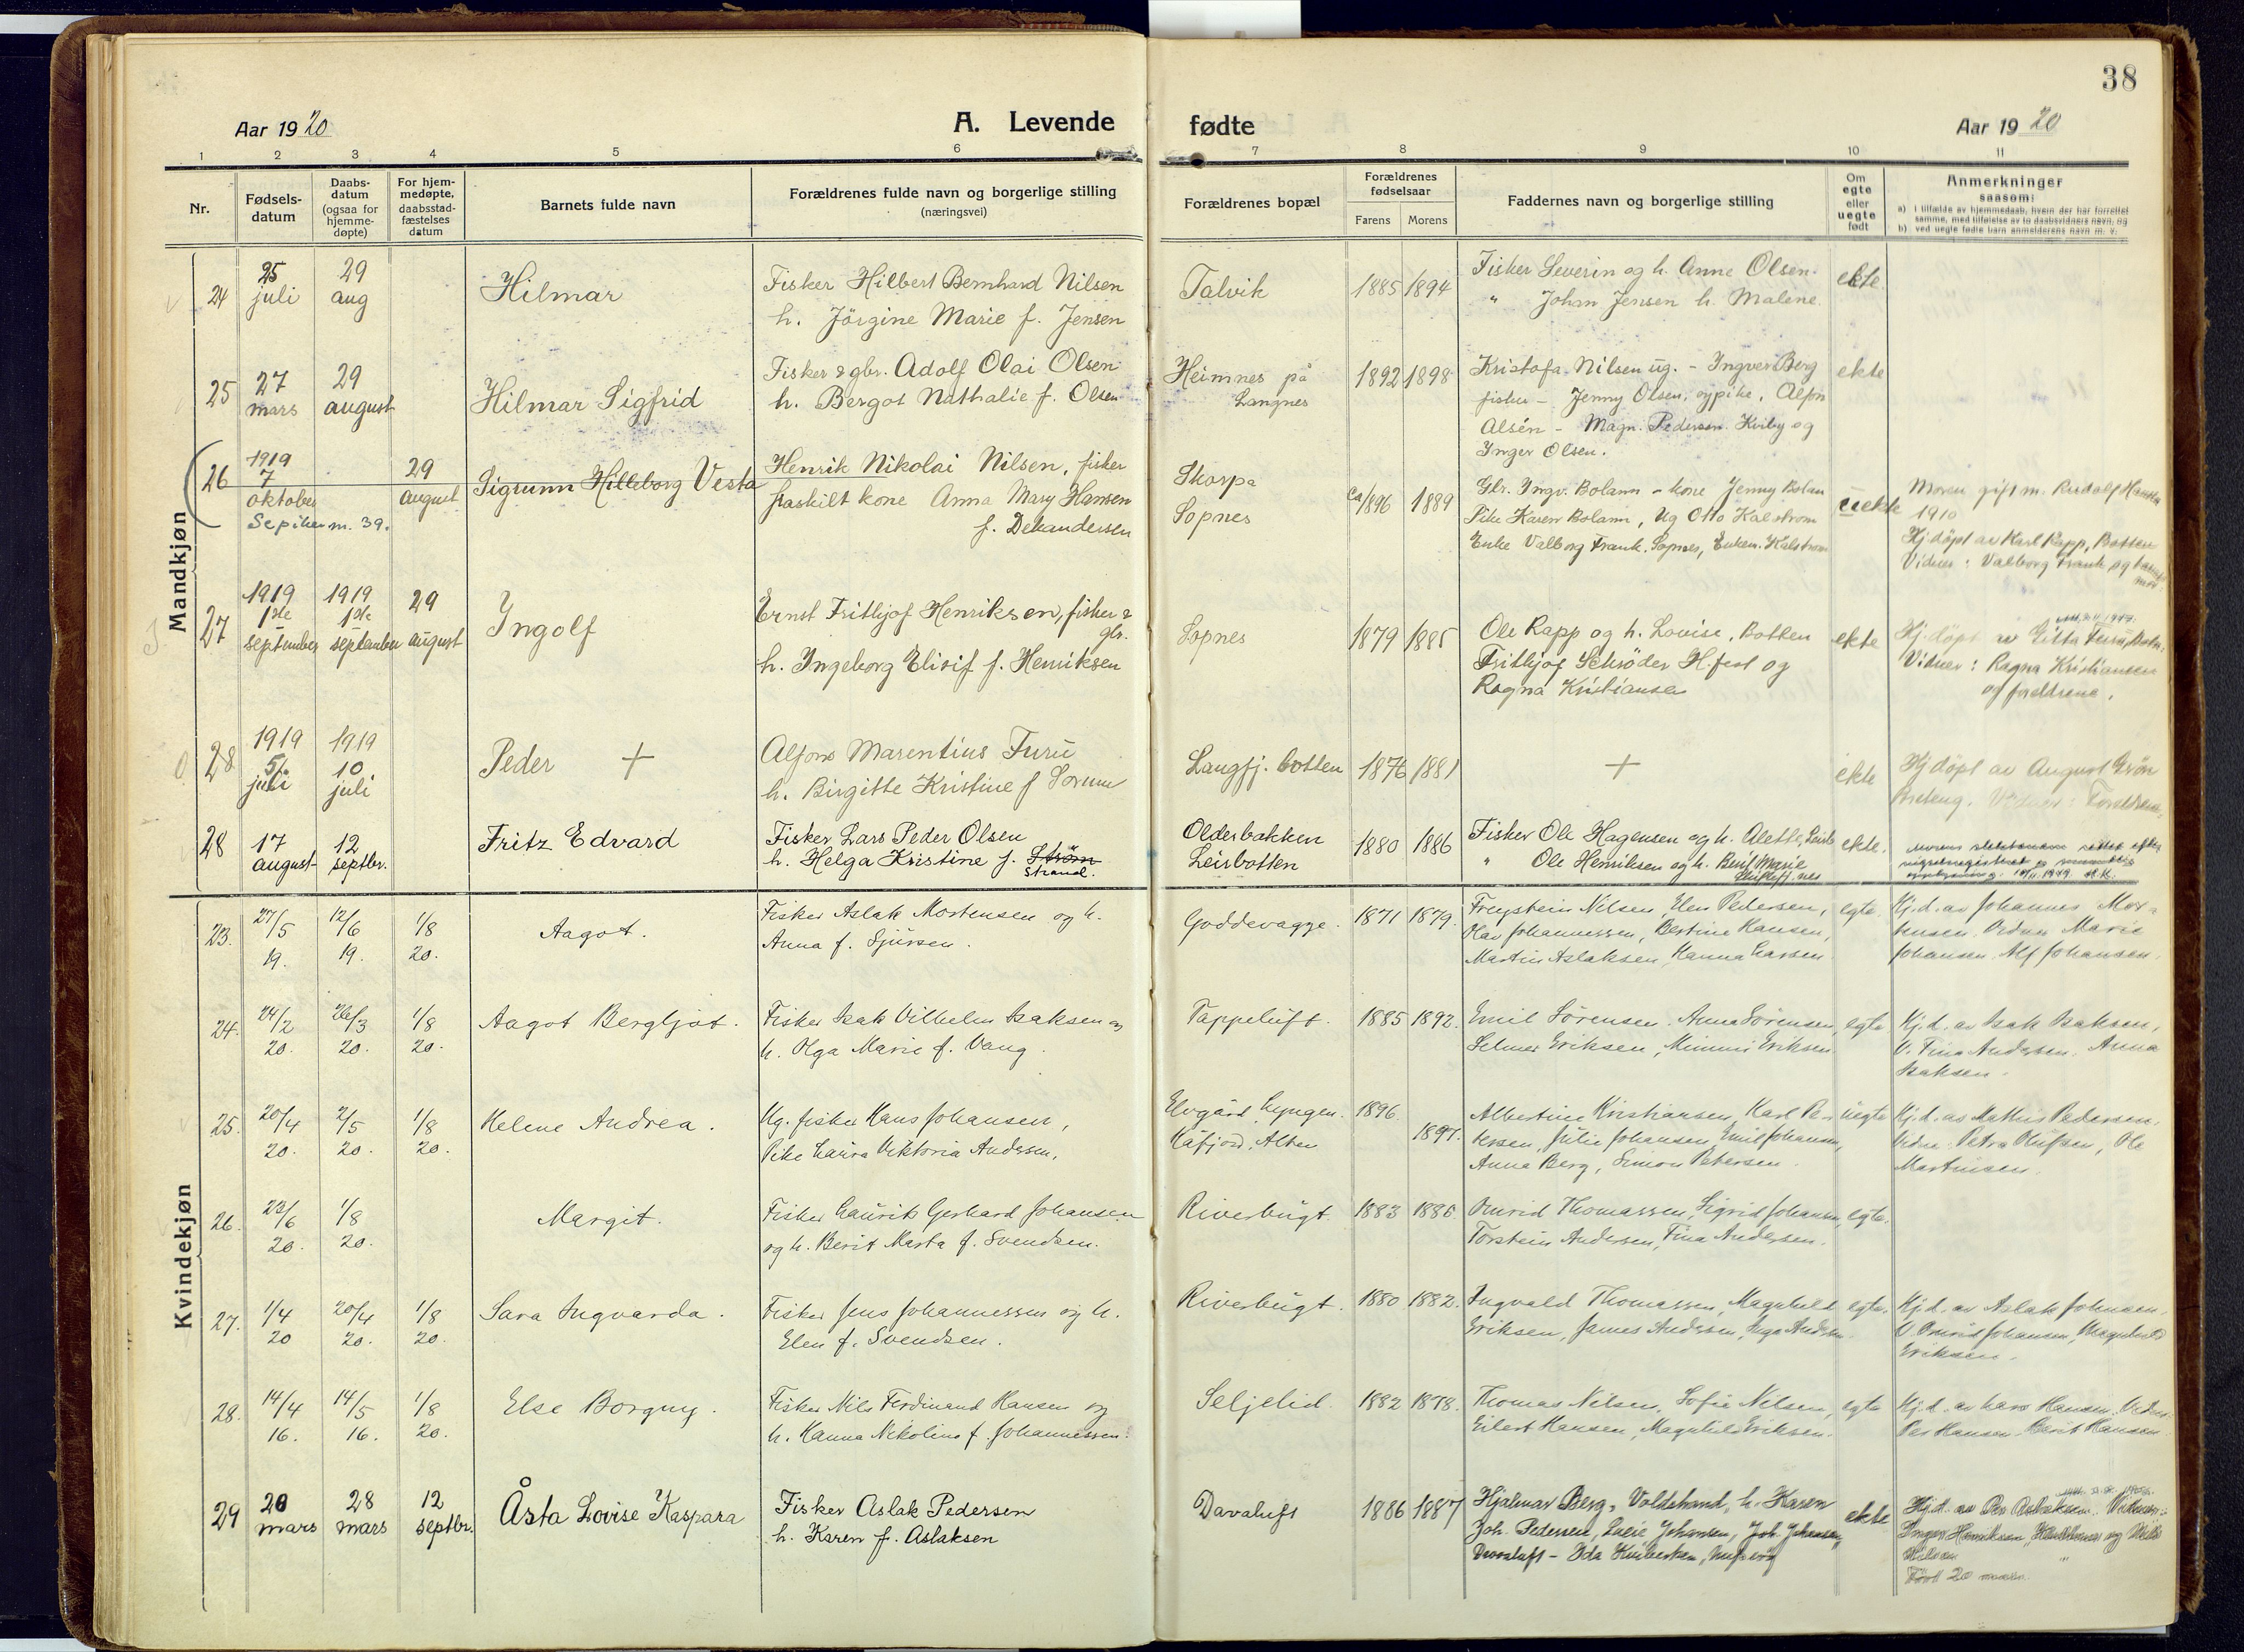 38
Aar 1920
A. Levende
fødte
Aar 1920
1 2 3 4 5 6 7 8 9 10 11
Nr.
Fødsels-
datum
Daabs-
datum
(ogsaa for
hjemme-
døpte)
For hjem-
medøpte,
daabsstad-
fæstelses
datum
Barnets fulde navn
Forældrenes fulde navn og borgerlige stilling
(næringsvei)
Forældrenes bopæl
Forældrenes
fødselsaar
Farens Morens
Faddernes navn og borgerlige stilling
Om
egte
eller
uegte
født
Anmerkninger
saasom:
a) i tilfælde av hjemmedaab, hvem der har forrettet
samme, med tilføielse av to daabsvidners navn, og
b) ved uegte fødte barn anmelderens navn m. v.
Mandkjøn
24
25 juli
29 aug
Hilmar
Fisker Hilbert Bernhard Nilsen
h. Jörgine Marie f. Jensen
Talvik
1885 1894
Fisker Severin og h. Anne Olsen.
" Johan Jensen h. Malene.
ekte
25
27 mars
29 august
Hilmar Sigfrid
Fisker & gbr. Adolf Olai Olsen
h. Bergot Nathalie f. Olsen
Heimnes på
Langnes
1892 1898
Kristofa Nilsen ug. - Ingver Berg
fisker - Jenny Olsen, Alfon
Alsén - Magn. Pedersen Kviby og
Inger Olsen.
ekte
26
1919
7
oktober
29
august
Sigrunn Hilleborg Vesta
Henrik Nikolai Nilsen, fisker
fraskilt kone Anna Mary Hansen
f.
Skorpa
Sopnes
ca 1896 1889
Gbr. Ingv. Bolann - kone Jenny Bolan
Pike Karen Bolann, Ug Otto Kalstrom
Enke Valborg Frank. Sopnes, Enkem. Kalstrom
uekte
Moren gift m. Rudolf Hansen
1910
Hj.döpt av Karl Rapp, Botten
Vidner: Valborg Frank og
27
1919
1ste
september
1919
1ste
september
29
august
Ingolf
Ernst Frithjof Henriksen, fisker &
gbr.
h. Ingeborg Elisif f. Henriksen
Sopnes
1879 1885
Ole Rapp og h. Lovise, Botten
Frithjof Schrøder H.fest og
Ragna Kristiansen
ekte
Hj. döpt av
Vidner: Ragna Kristiansen
og foreldrene.
28
1919
5
juli
1919
10
juli
Peder +
Alfons Marentius Furu
h. Birgitte Kristine f Sorum
Langfj. botten
1876 1881
+
ekte
Hj döpt av August Grön
Vidner: Foreldrene.
28
17
august
12
septbr.
Fritz Edvard
Fisker Lars Peder Olsen
h. Helga Kristine f. Strøm
Strand.
Olderbakken
Leirbotten
1880 1886
Fisker Ole Hagensen og h. Alette, Leirb
" Ole Henriksen og h. Berit Marie
ekte.
Kvindekjøn
23.
27/5
19.
12/6
19.
1/8
20.
Aagot.
Fisker Aslak Mortensen og h.
Anna f. Sjursen.
Goddevagge.
1871 1879.
Freystein Nilsen, Elen Pedersen,
Olav Johannessen, Bertine Hansen,
Martin Aslaksen, Hanna Larsen
egte.
Hj.d. av Johannes Mor-
tensen. Vidner Marie
Johansen. Alf Johansen.
24.
24/2
20.
26/3
20.
1/8
20.
Aagot Bergljot.
Fisker Isak Vilhelm Isaksen og
h. Olga Marie f. Vang.
Tappeluft.
1885 1892.
Emil Sørensen. Anna Sørensen
Selmer Eriksen, Mimmi Eriksen
egte
Hj.d. av Isak Isaksen,
V. Tina Andersen. Anna
Isaksen.
25.
20/4
20.
2/5
20.
1/8
20.
Helene Andrea.
Ug. fisker Hans Johansen,
Pike Laura Viktoria Andersen.
Elvgård Lyngen.
Kåfjord, Alten
1896.
1897.
Albertine Kristiansen, Karl Pe-
tersen, Julie Johansen, Emil Johansen,
Anna Berg, Simon Petersen.
uegte
Hj.d. av Mathis Pedersen.
Vidne: Petra Olufsen, Ole
Martinsen.
26.
23/6
20.
1/8
20.
Margit.
Fisker Laurik Gerhard Johansen
og h. Berit Marta f. Svendsen.
Riverbugt.
1883 1886.
Omrid Thomassen, Sigrid Johansen,
Torstein Andersen, Tina Andersen.
egte.
27.
1/4
20
20/4
20.
1/8
20.
Sara Ingvarda.
Fisker Jens Johannessen og h.
Elen f. Svendsen.
Riverbugt.
1880 1882.
Ingvald Thomassen, Magnhild
Eriksen, James Andersen, Inga Andersen
egte.
Hj.d. av Aslak Johnsen.
V. Omrid Johansen, Magnhild
Eriksen.
28.
14/4
16.
14/5
16.
1/8
20.
Else Borgny.
Fisker Nils Ferdinand Hansen og
h. Hanna Nikoline f. Johannessen.
Seljelid.
1882 1878.
Thomas Nilsen, Sofie Nilsen,
Eilert Hansen, Magnhild Eriksen.
egte
Hj.d. av Lars Hansen. Vidne
Per Hansen. Berit Hansen
29
20
mars
28
mars
12
septbr.
Åsta Lovise Kaspara
Fisker Aslak Pedersen
h. Karen f. Aslaksen
Davaluft
1886 1887
Hjalmar Berg, Voldstrand, h. Karen
Joh. Pedersen, Lucie Johansen, Joh. Johansen,
Davaluft - Ida
ekte
Hj.d. av Per Aslaksen. Vidner:
Inger Henriksen, og Nils
Nilsen
Født 20 mars.